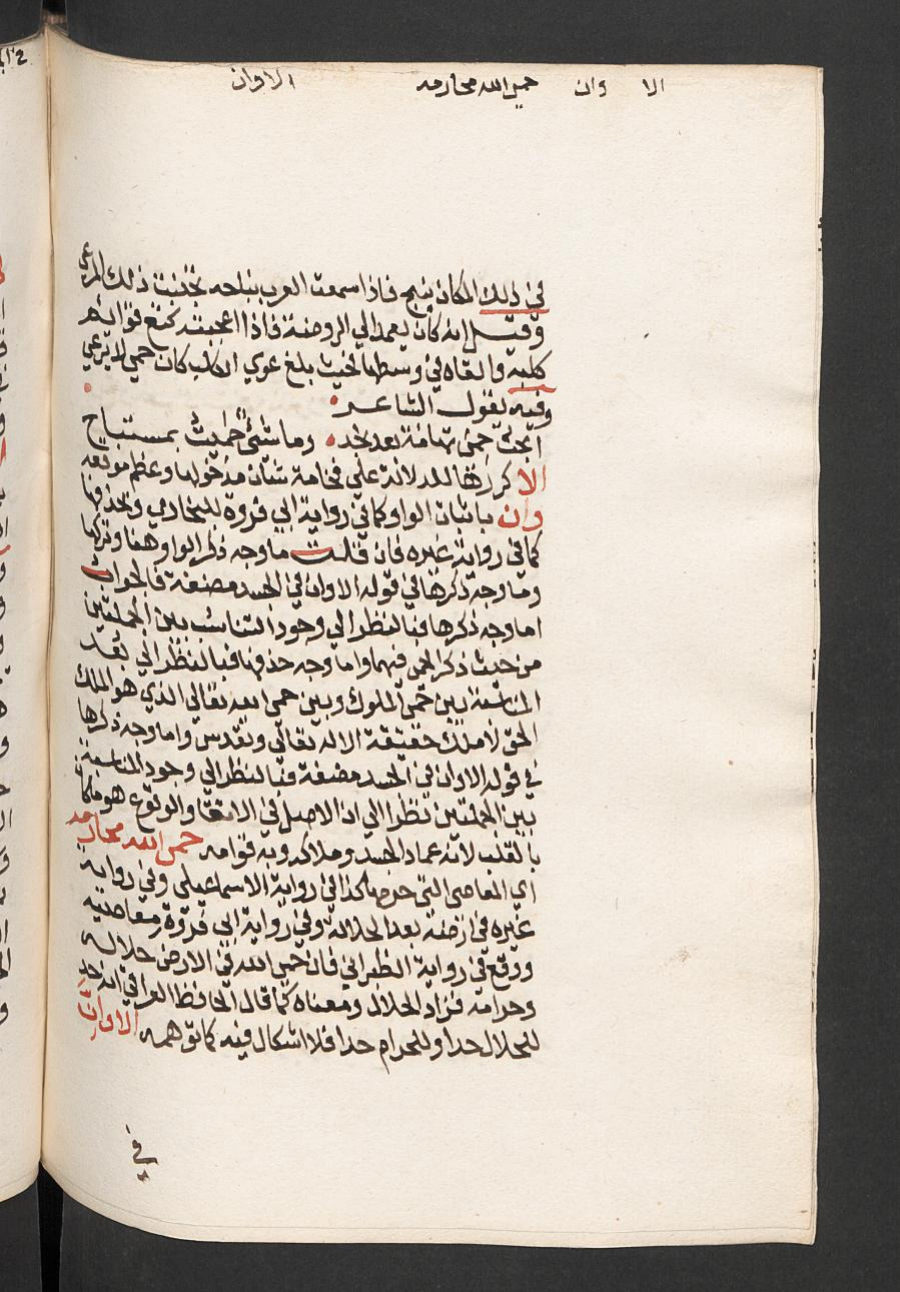 الا وان حمى الله محارمه الاوان
في ذلك المكان ينبح فاذا سمعت العرب بنباحه تجنبت ذلك المرعى
وقيل انه كان يعمد الي الروضة فاذا اعجبته كنع قوائم
كلبه والقاه في وسطها فحيث بلغ عوي الكلب كان حمي لا يرعي
وفيه يقول الشاعر
ابحت حمى تهامة بعد نجد وما شئ حميت بمستباح
الا كررها للدلالة علي فخامة شان مدخولها وعظم موقعه
وان باثبات الواو كما في رواية ابي فروة للبخاري وبحذفها
كما في رواية غيره فان قلت ما وجه ذكر الواو هنا وتركها
وما وجه ذكرها في قوله الاوان في الجسد مضغة فالجواب
اما وجه ذكرها فبالنظر الي وجود التناسب بين الجملتين
من حيث ذكر الحمى فيهما واما وجه حذفها فبالنظر الي بعد
المناسبة بين حمى الملوك وبين حمى الله تعالي الذي هو الملك
الحق لا ملك حقيقة الا له تعالي وتقدس واما وجه ذكرها
في قوله الاوان في الجسد مضغة فبالنظر الي وجود المناسبة
بين الجملتين نظرا الي ان الاصل في الاتقا والوقوع هو ما كان
بالقلب لانه عماد الجسد وملاكه وبه قوامه حمى الله محارمه
اي المعاصي التي حرمها كذا في رواية الاسماعيلي وفي رواية
غيره في ارضه بعد الجلالة وفي رواية ابي فروة معاصيه
ووقع في رواية الطبراني فان حمي الله في الارض حلاله
وحرامه فزاد الحلال ومعناه كما قال الحافظ العراقي انه حد
للحلال حدا وللحرام حدا فلا اشكال فيه كما توهمه الاوان
في